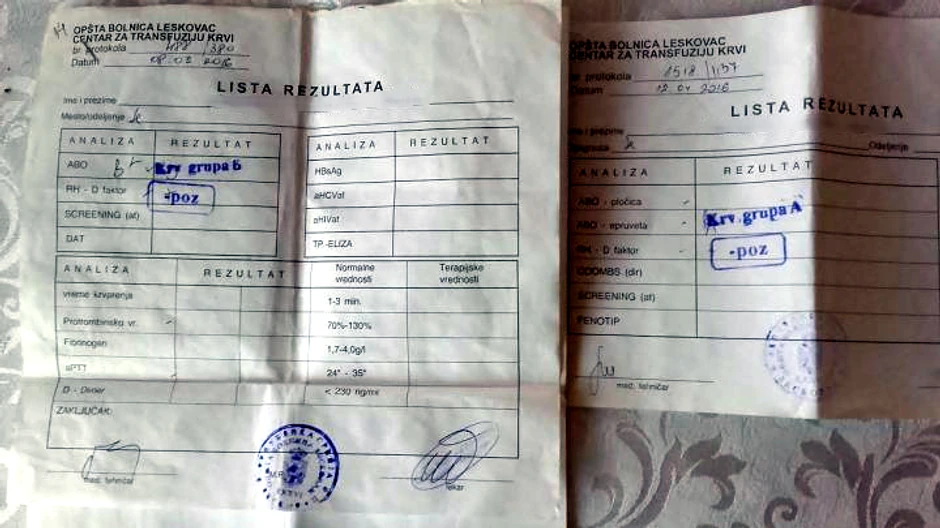 OPŠTA BOLNICA LESKOVAC
CENTAR ZA TRANSFUZIJU KRVI
br. protokola 488/380
Datum 08.03 2016
LISTA REZULTATA
Ime i prezime
Mesto/odeljenje
ANALIZA REZULTAT
ABO B+ Krv grupa B
RH - D faktor -poz
SCREENING (at)
DAT
ANALIZA REZULTAT
HBsAg
aHCVat
aHIVat
TP-ELIZA
ANALIZA REZULTAT Normalne vrednosti Terapijske vrednosti
vreme krvarenja 1-3 min.
Protrombinsko vr. 70%-130%
Fibrinogen 1,7-4,0g/l
aPTT 24" - 35"
D - Dimer < 230 ng/ml
ZAKLJUČAK:
med. tehničar
M.P.
lekar
OPŠTA BOLNICA LESKOVAC
CENTAR ZA TRANSFUZIJU KRVI
br. protokola 1518/1137
Datum 12 04 2016
LISTA REZULTATA
Ime i prezime
Dijagnoza Odeljenje
ANALIZA REZULTAT
ABO - pločica
ABO - epruveta Krv grupa A
RH - D faktor -poz
COOMBS (dir)
SCREENING (at)
FENOTIP
med. tehničar